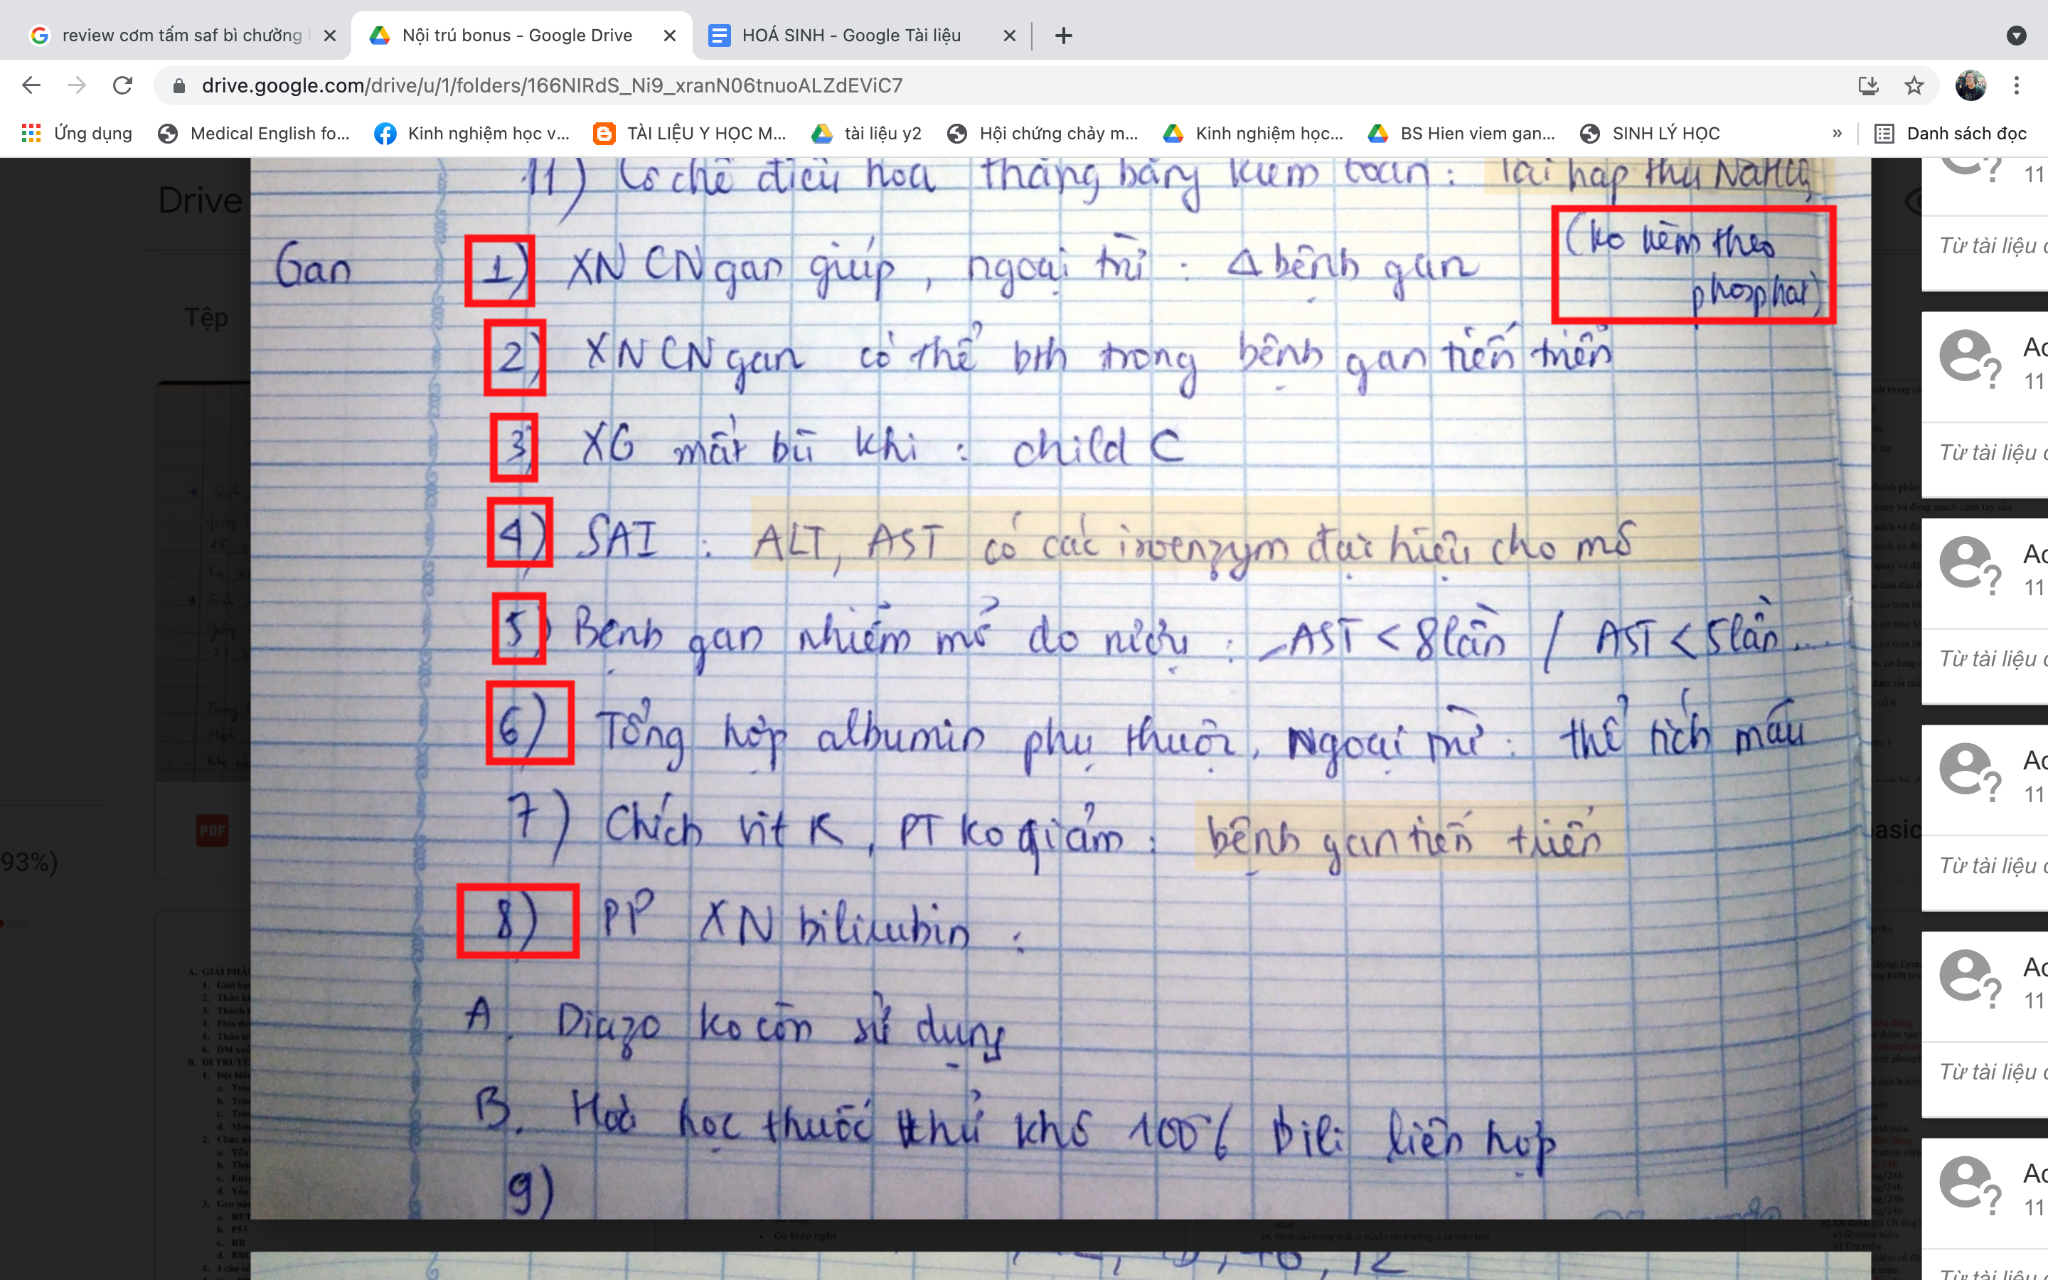 review cơm tấm saf bì chưởng
Nội trú bonus - Google Drive
HOÁ SINH - Google Tài liệu
drive.google.com/drive/u/1/folders/166NIRdS_Ni9_xranN06tnuoALZdEViC7
Ứng dụng
Medical English fo...
Kinh nghiệm học v...
TÀI LIỆU Y HỌC M...
tài liệu y2
Hội chứng chảy m...
Kinh nghiệm học...
BS Hien viem gan...
SINH LÝ HỌC
»
Danh sách đọc
Drive
Tệp
PDF
93%)
11) Cơ chế điều hoà thăng bằng kiềm toan: Tái hấp thu NaHCO3
(ko kèm theo
phosphat)
Gan 1) XN CN gan giúp, ngoại trừ: Δ bệnh gan
2) XN CN gan có thể bth trong bệnh gan tiến triển
3) XG mất bù khi: child C
4) SAI: ALT, AST có các isoenzym đặc hiệu cho mô
5) Bệnh gan nhiễm mỡ do rượu: AST < 8 lần / AST < 5 lần...
6) Tổng hợp albumin phụ thuộc, Ngoại trừ: thể tích máu
7) Chích vit K, PT ko giảm: bệnh gan tiến triển
8) PP XN bilirubin:
A. Diazo ko còn sử dụng
B. Hoá học thuốc thử khô 100% bili liên hợp
9)
11
Từ tài liệu c
Ac
11
Từ tài liệu c
Ac
11
Từ tài liệu c
Ac
11
Từ tài liệu c
Ac
11
Từ tài liệu c
Ac
11
Từ tài liệu c